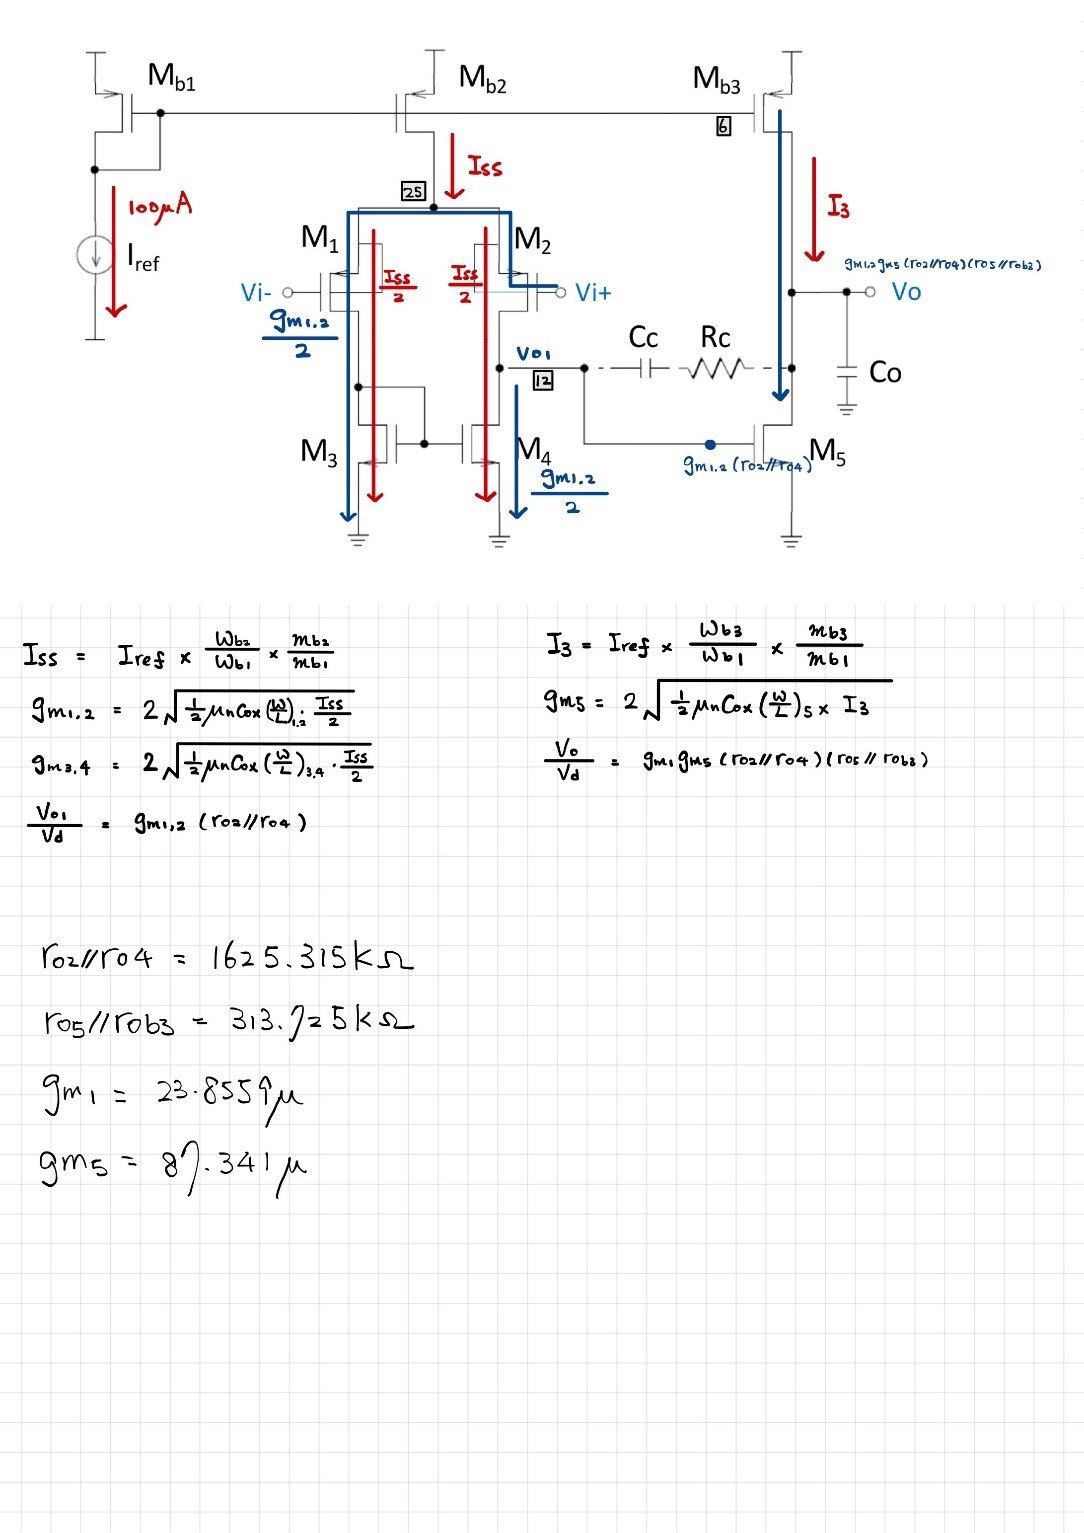 M_b1
M_b2
M_b3
6
Iss
25
100μA
I_3
M_1
M_2
I_ref
Iss/2
Iss/2
gm1,2 gm5 (ro2//ro4)(ro5//rob3)
Vi-
Vi+
Vo
gm1.2/2
Vo1
Cc
Rc
12
Co
M_3
M_4
M_5
gm1.2 (ro2//ro4)
gm1.2/2
Iss = Iref × Wb2/Wb1 × mb2/mb1
gm1.2 = 2√(1/2 μnCox (W/L)1.2 · Iss/2)
gm3,4 = 2√(1/2 μnCox (W/L)3,4 · Iss/2)
Vo1/Vd = gm1,2 (ro2//ro4)
I3 = Iref × Wb3/Wb1 × mb3/mb1
gm5 = 2√(1/2 μnCox (W/L)5 × I3)
Vo/Vd = gm1 gm5 (ro2//ro4)(ro5//rob3)
ro2//ro4 = 1625.315kΩ
ro5//rob3 = 313.725kΩ
gm1 = 23.8559μ
gm5 = 87.341μ